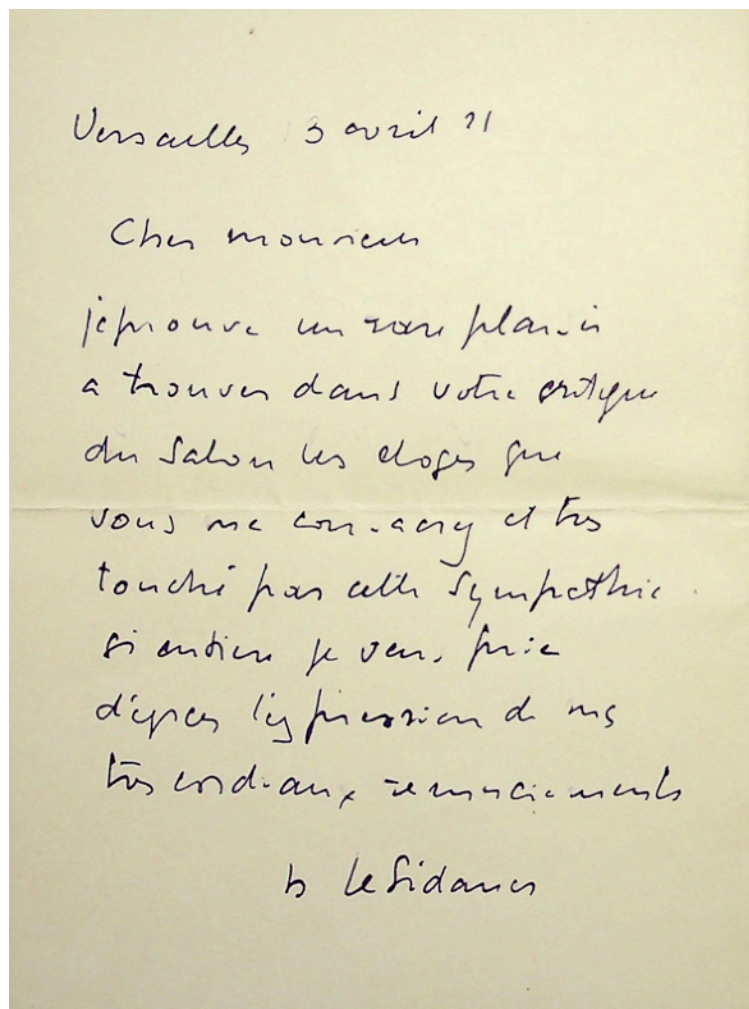 Versailles 3 avril 21
Cher monsieur
j'éprouve un rare plaisir
a trouver dans votre critique
du Salon les eloges que
vous me consacrez et tres
touché par cette sympathie
si entiere je vous prie
d'agréer l'expression de mes
tres cordiaux remerciements
Le Sidaner